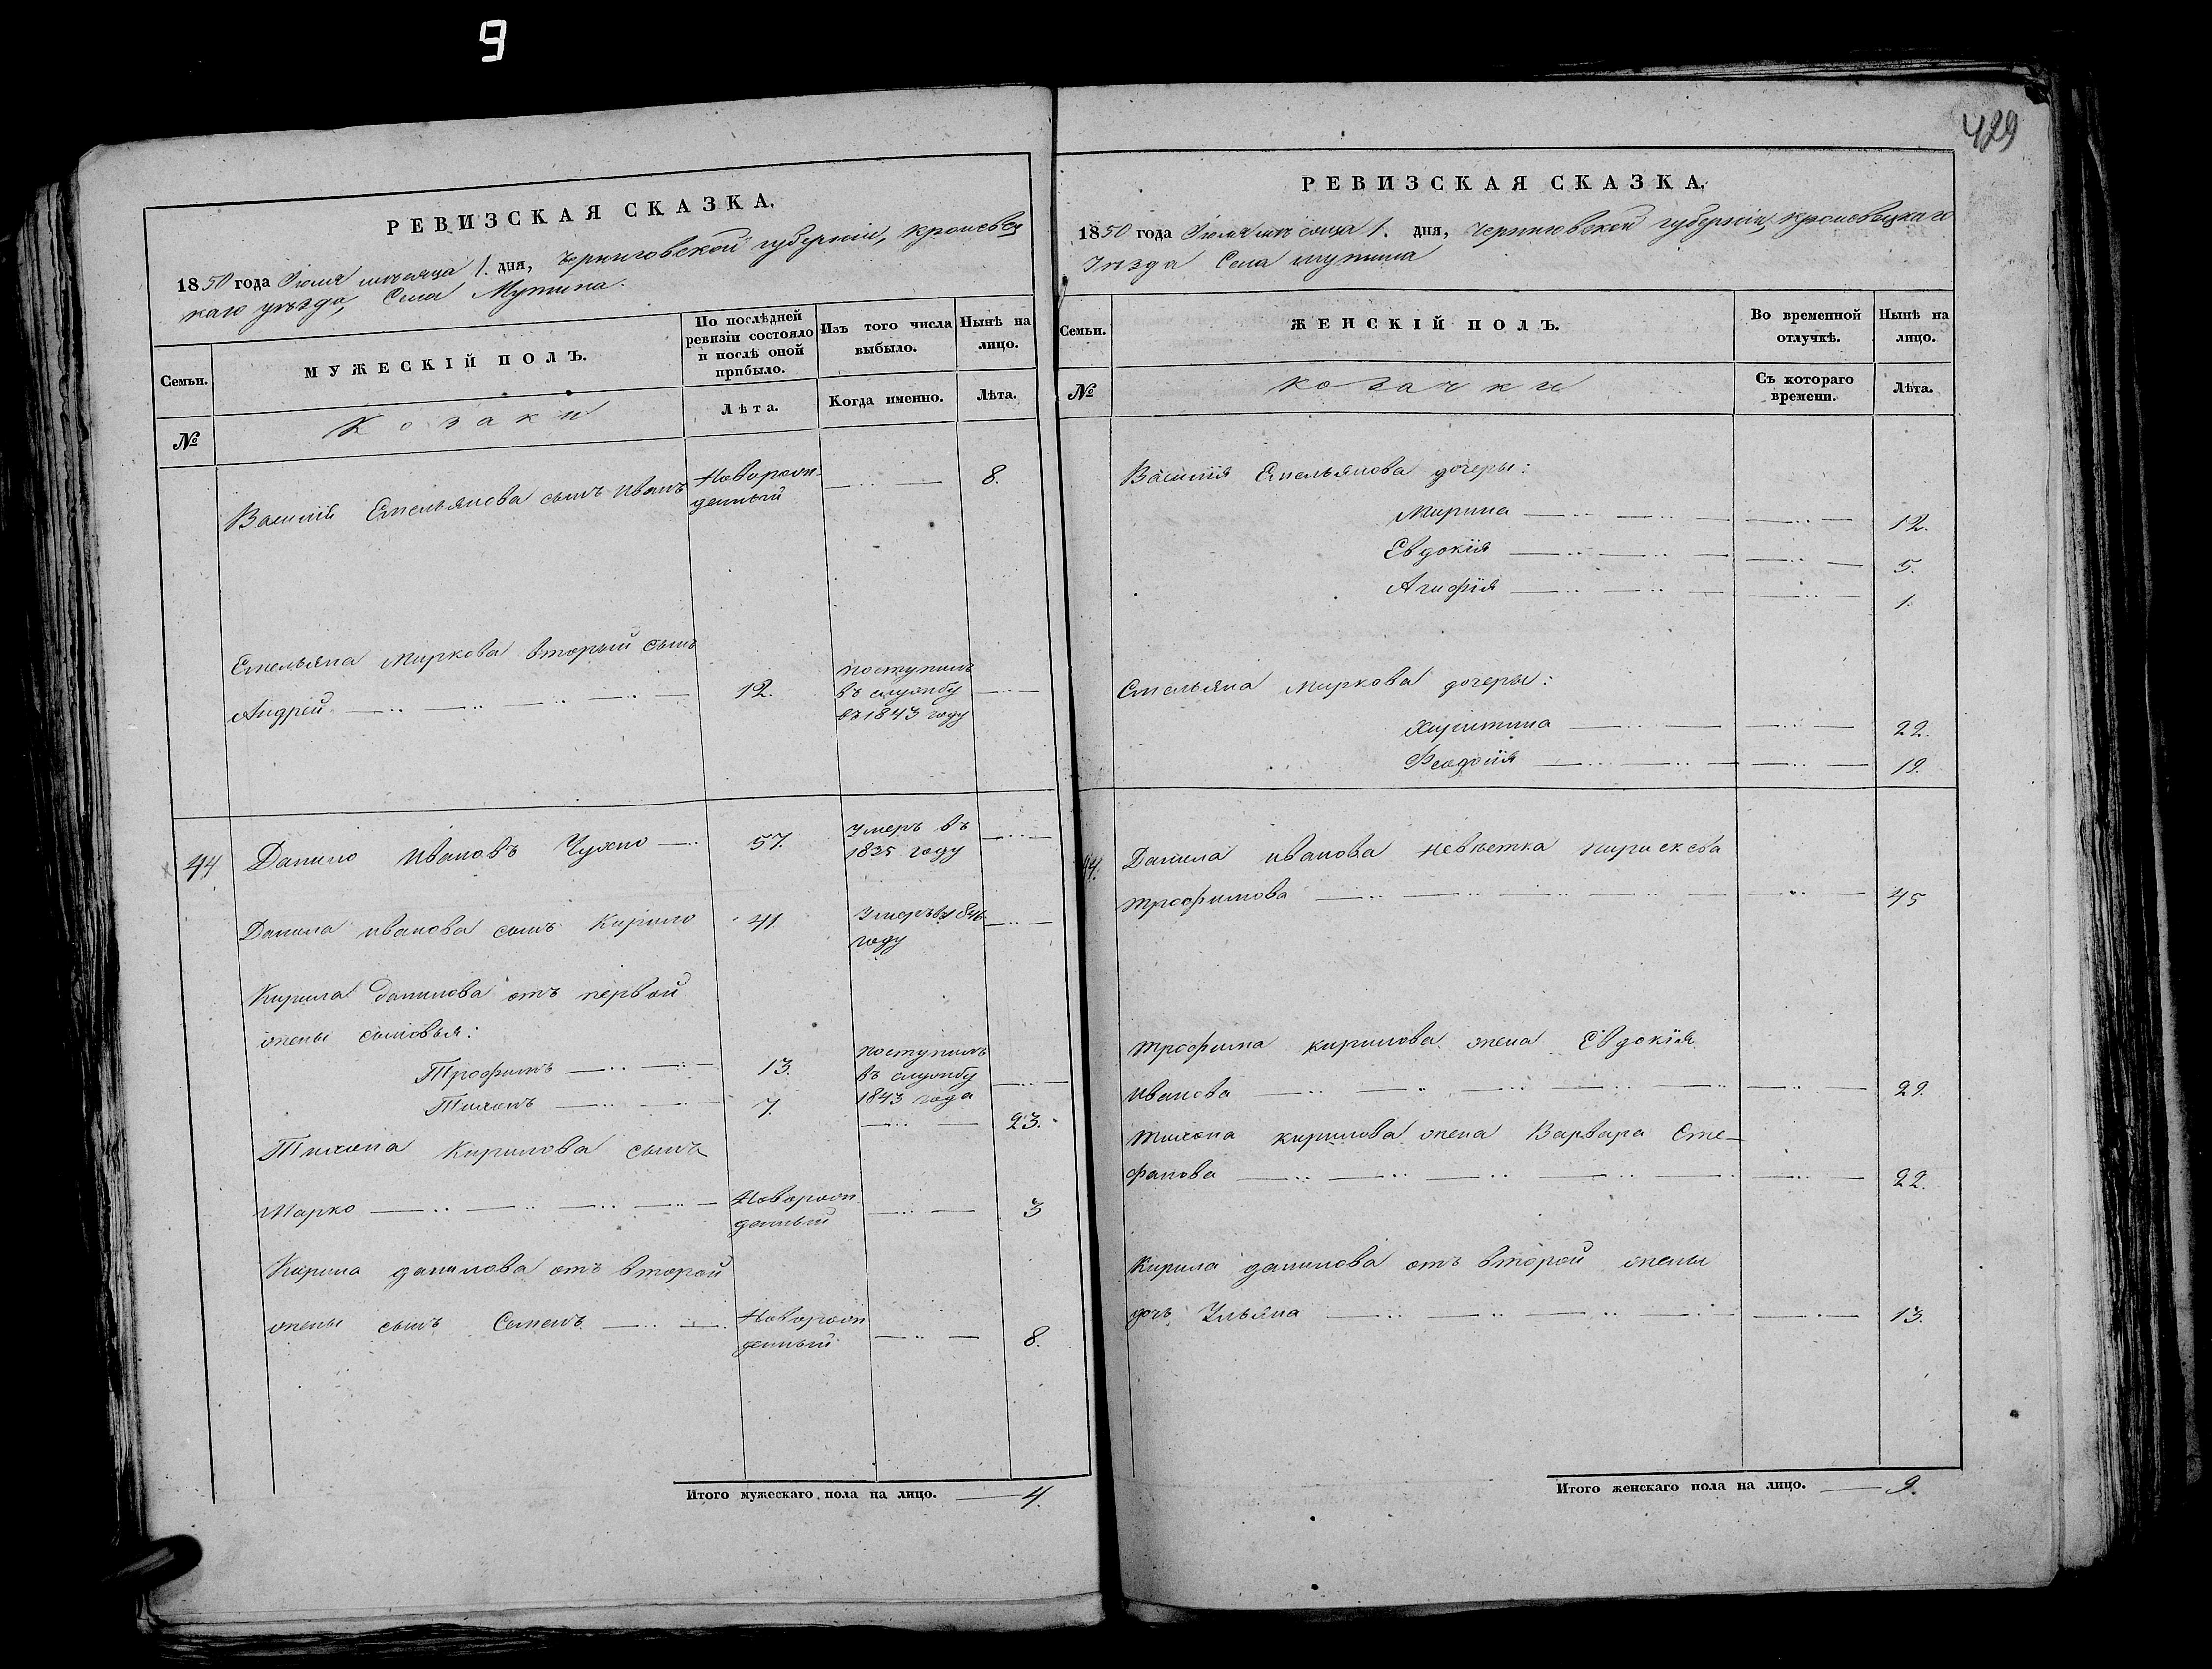 9
429
РЕВИЗСКАЯ СКАЗКА.
1850 года Іюля мѣсяца 1. дня, Черниговской губерніи, Кролевец
каго уѣзда, Села Мутина.
Семьи.
МУЖЕСКІЙ ПОЛЪ.
По послѣдней
ревизіи состояло
и послѣ оной
прибыло.
Изъ того числа
выбыло.
Нынѣ на
лицо.
№
Козаки
Лѣта.
Когда именно.
Лѣта.
Василія Емельянова сынъ Иванъ
Новорож-
денный
8.
Емельяна Маркова вторый сынъ
Андрей
12.
поступилъ
въ службу
въ 1843 году
44
Данило Ивановъ Чухно
57.
Умеръ въ
1835 году
Данила Иванова сынъ Кирило
41.
Умеръ въ
году
Кирила Данилова отъ первой
жены сыновья:
Трофимъ
13.
поступилъ
въ службу
1843 года
Тихонъ
7.
23.
Тихона Кирилова сынъ
Марко
Новорож
денный
3
Кирила Данилова отъ второй
жены сынъ Семенъ
Новорож
денный
8.
Итого мужескаго пола на лицо. 4.
РЕВИЗСКАЯ СКАЗКА.
1850 года Іюля мѣсяца 1. дня, Черниговской губерніи, Кролевецкаго
Уѣзда Села Мутина
Семьи.
ЖЕНСКІЙ ПОЛЪ.
Во временной
отлучкѣ.
Нынѣ на
лицо.
№
Козачки
Съ котораго
времени.
Лѣта.
Василія Емельянова дочеры:
Марина
12.
Евдокія
5.
Агафія
1.
Емельяна Маркова дочеры:
Харитина
22.
Феодосія
19.
44.
Данила Иванова невѣстка Параскева
Трофимова
45
Трофима Кирилова жена Евдокія
Иванова
29.
Тихона Кирилова жена Варвара Сте-
фанова
22.
Кирила Данилова отъ второй жены
дочь Ульяна
13.
Итого женскаго пола на лицо. 9.